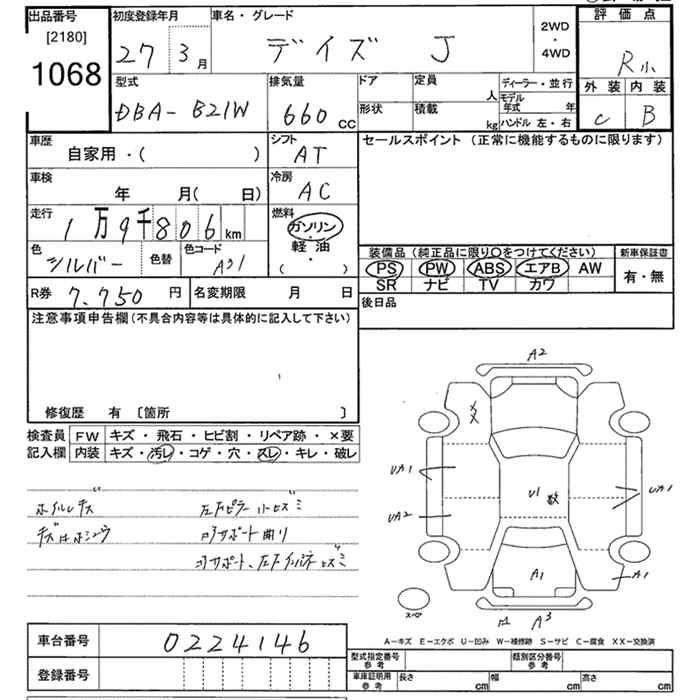 出品番号
[2180]
1068
初度登録年月
27 3月
車名・グレード
デイズ J
2WD
・
4WD
評価点
R小
外装 内装
C B
型式
DBA-B21W
排気量
660 cc
ドア
定員 人
形状
積載 kg
ディーラー・並行
モデル年式 年
ハンドル 左・右
車歴
自家用・( )
シフト
AT
セールスポイント (正常に機能するものに限ります)
車検
年 月( 日)
冷房
AC
走行
1万9千806km
燃料
ガソリン
・
軽油
( )
色
シルバー
色替
色コード
A31
装備品 (純正品に限り〇をつけてください)
PS PW ABS エアB AW
SR ナビ TV カワ
新車保証書
有・無
R券
7.750 円
名変期限 月 日
後日品
注意事項申告欄 (不具合内容等は具体的に記入して下さい)
修復歴 有 〔箇所 〕
検査員記入欄
FW キズ・飛石・ヒビ割・リペア跡・×要
内装 キズ・汚レ・コゲ・穴・スレ・キレ・破レ
ホイルキズ
A2
UA1
UA2
U1 数
UA1
A1
A1
A3
A-キズ E-エクボ U-凹み W-補修跡 S-サビ C-腐食 XX-交換済
車台番号
0224146
登録番号
型式指定番号
参考
類別区分番号
参考
車庫証明用
参考
長さ cm
幅 cm
高さ cm